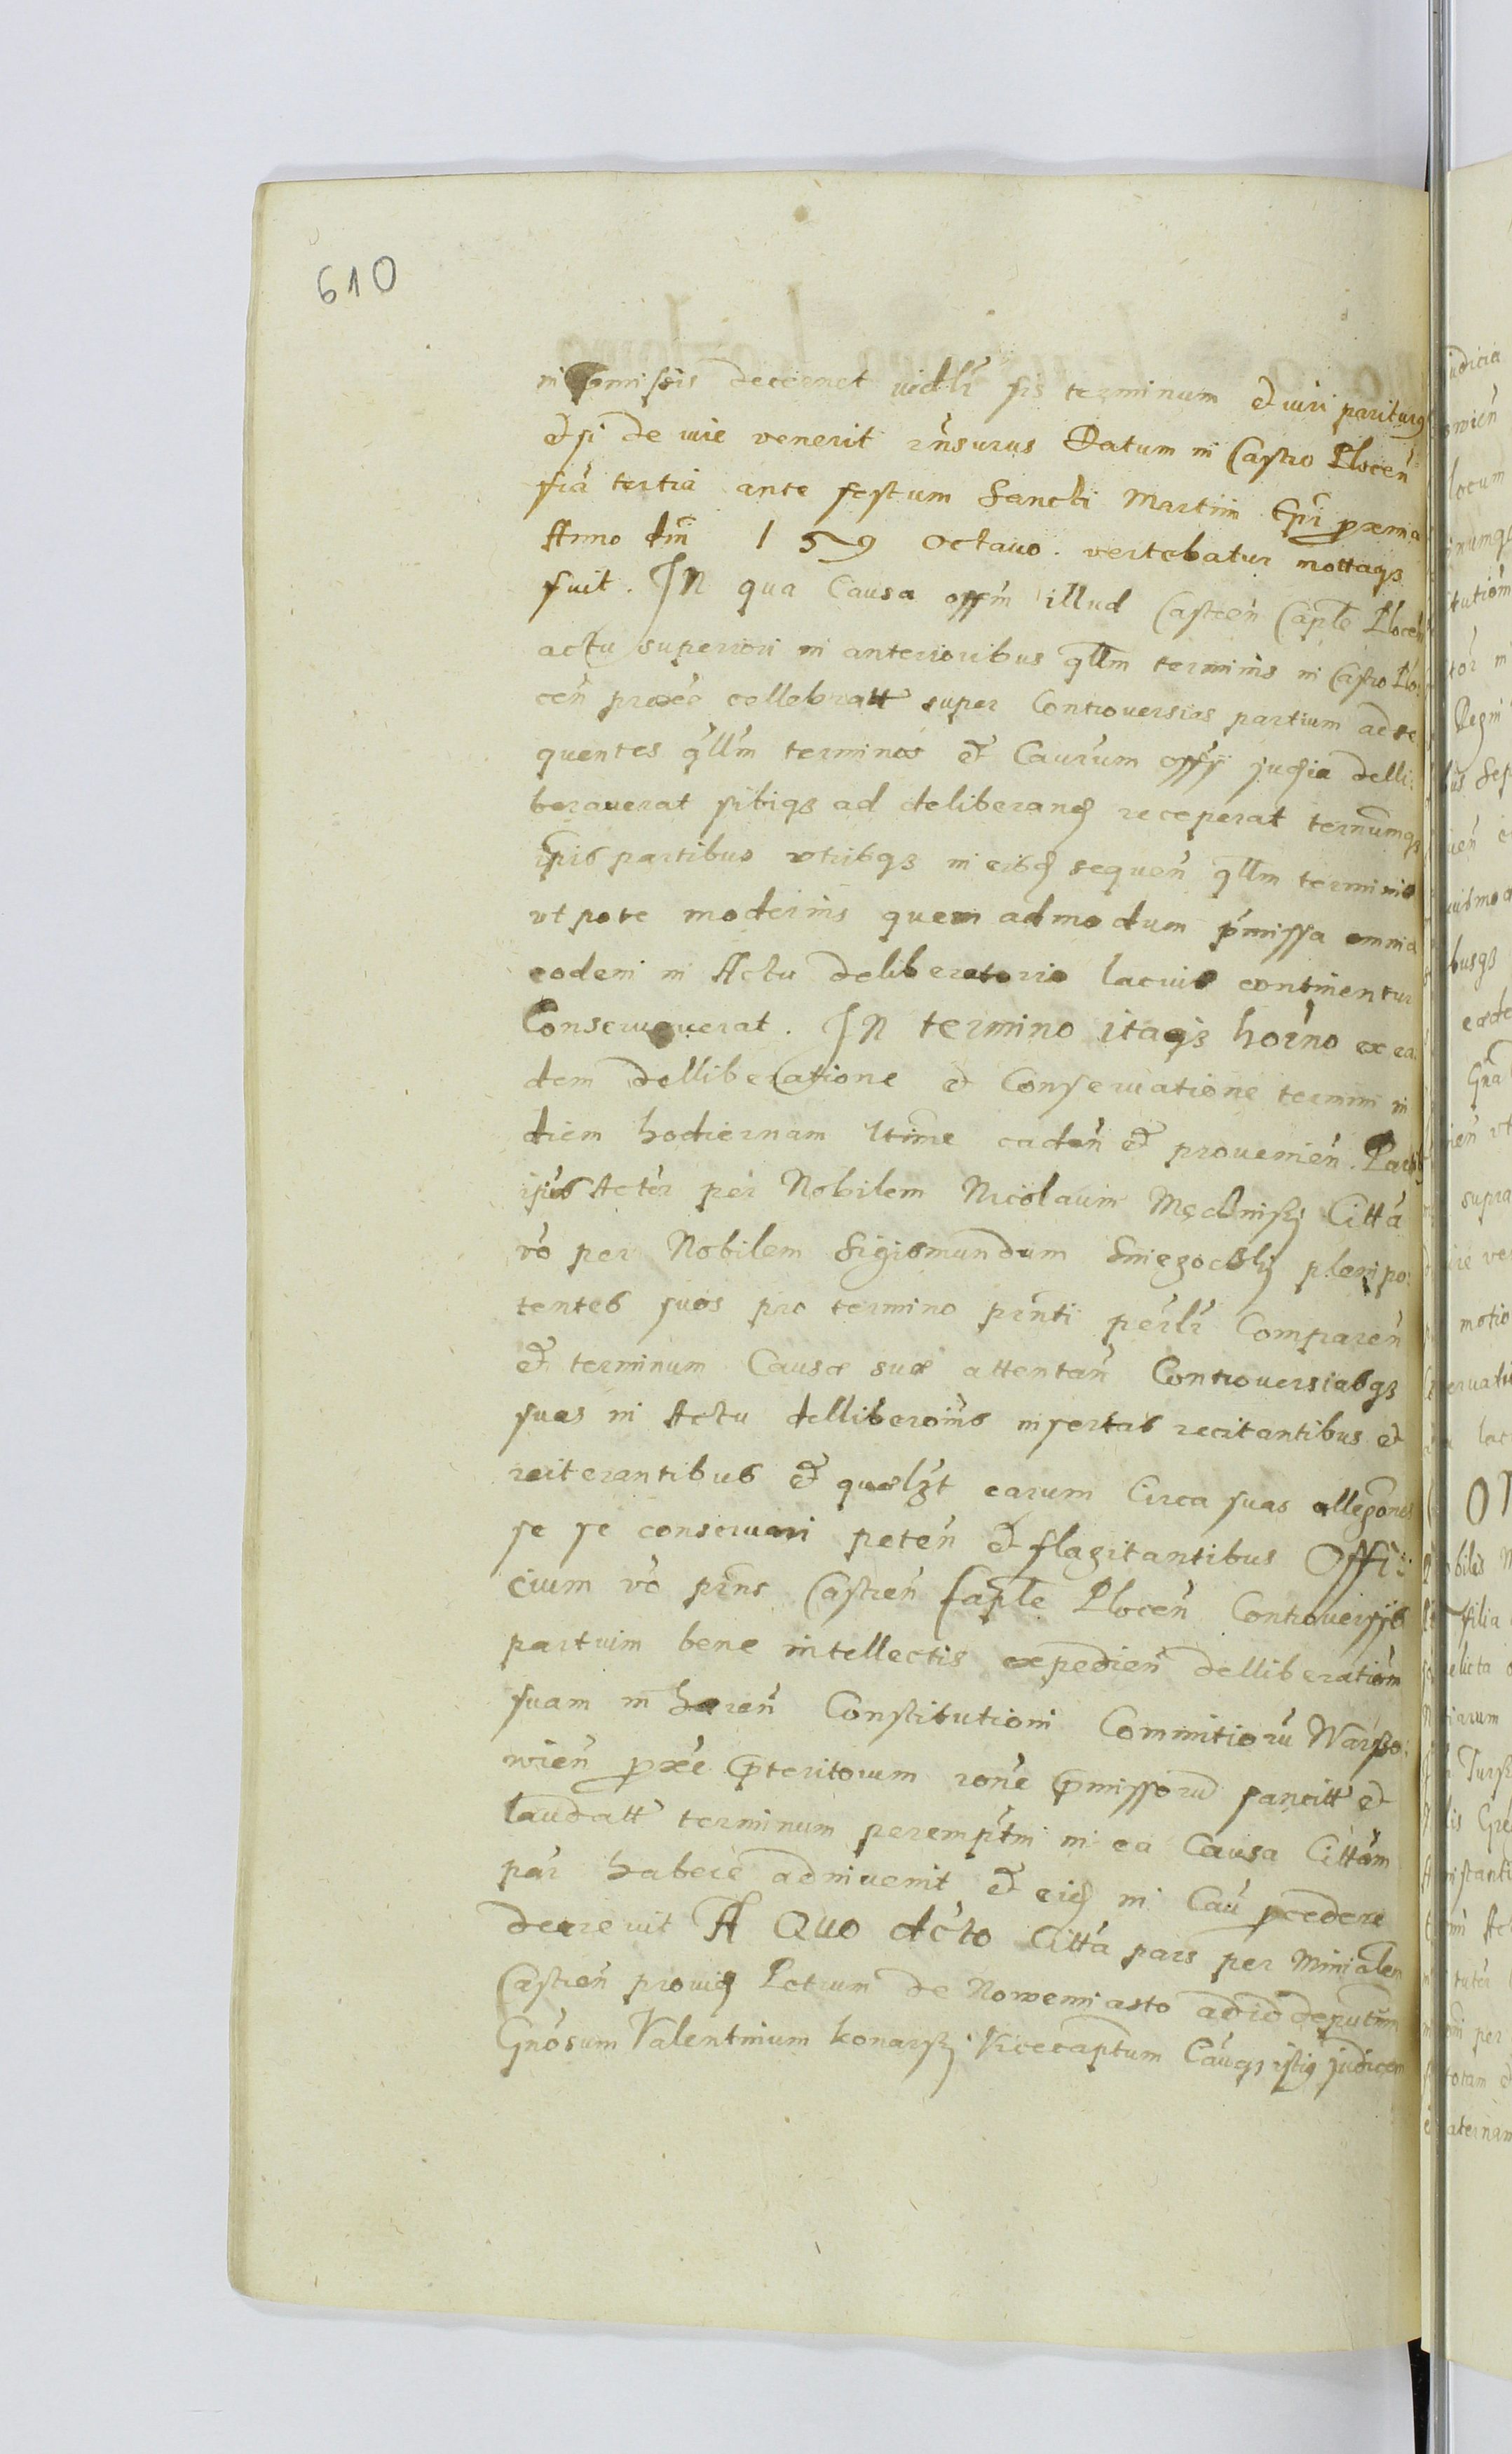 610
in p̃missis decernet vidlr̃ sis terminum et iuri pariturq
et si de iure venerit rñsurus Datum in Castro Plocen̄
fria tertia ante festum Sancti Martini Epi pxma
Anno dm̃ 159 octauo. vertebatur mottaqз
fuit. IN qua Causa offm̃ illud Castren̄ Caplе Plocen̄
actu superiori in anterioribus qllm̃ terminis in Castro Plo:
cen̄ proxe cellebratt super Controuersias partium ad se
quentes qllm̃ terminos et Caurum offy judia delli:
berauerat sibiqз ad deliberand receperat termumqз
ipis partibus vtribqз in eisd sequen̄ qllm̃ terminis
vt pote modernis quem ad modum p̃missa omnia
eodem in Actu deliberatorio lacius continentur
Conseruauerat. IN termino itaqз hoĩno ex ea
dem delliberatione et Conseruatione termini in
diem hodiernam ltime caden̄ et prouenien̄. Partibq
ipis Actor̃ per Nobilem Nicolaum Męclinskj Citta
vo per Nobilem Sigismundum Smegockj plenipo:
tentes suos pro termino pñti perlr̃ Comparen̄
et terminum Causæ suæ attentan̄ Controuersiasqз
suas in Actu delliberoins insertas recitantibus et
reiterantibus et quælзt earum Circa suas allegones
se se conseruari peten̄ et flagitantibus Offi:
cium vo pñs Castren̄ Caplе Plocen̄ Controuersijs
partium bene intellectis expedien̄ delliberatiom
suam in hæren̄ Constitutioni Commitioru Warso:
wien̄ pxe p̃teritorum rone p̃missoru sancitt et
laudatt terminum peremptm in ea Causa Cittam
par habere adinuenit et eid in Cau pcedere
decreuit A Quo dcto Citta pars per Minialem
Castren̄ prouid Petrum de Nowemiasto ad id deputum
Gnosum Valentinum konarskj Vicecaptum Cauqз istiq judicem